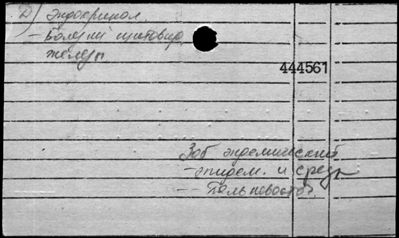 D) эндокринол.
- Болезни щитовид.
железы
444561
Зоб эндемический
- эпидем. и среды
- - Дальневосточ.